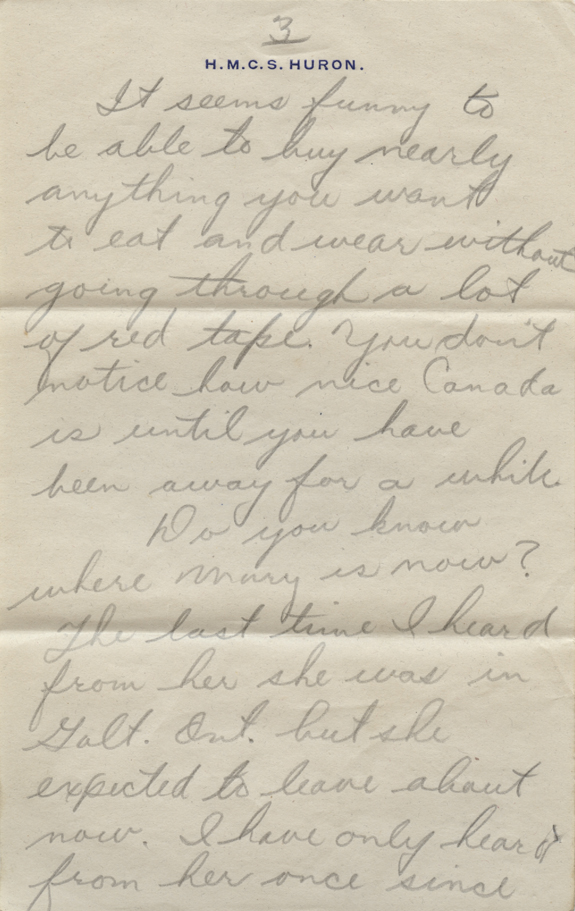 3
H.M.C.S. HURON.
It seems funny to
be able to buy nearly
anything you want
to eat and wear without
going through a lot
of red tape. You don't
notice how nice Canada
is until you have
been away for a while.
Do you know
where Mary is now?
The last time I heard
from her she was in
Galt. Ont. but she
expected to leave about
now. I have only heard
from her once since